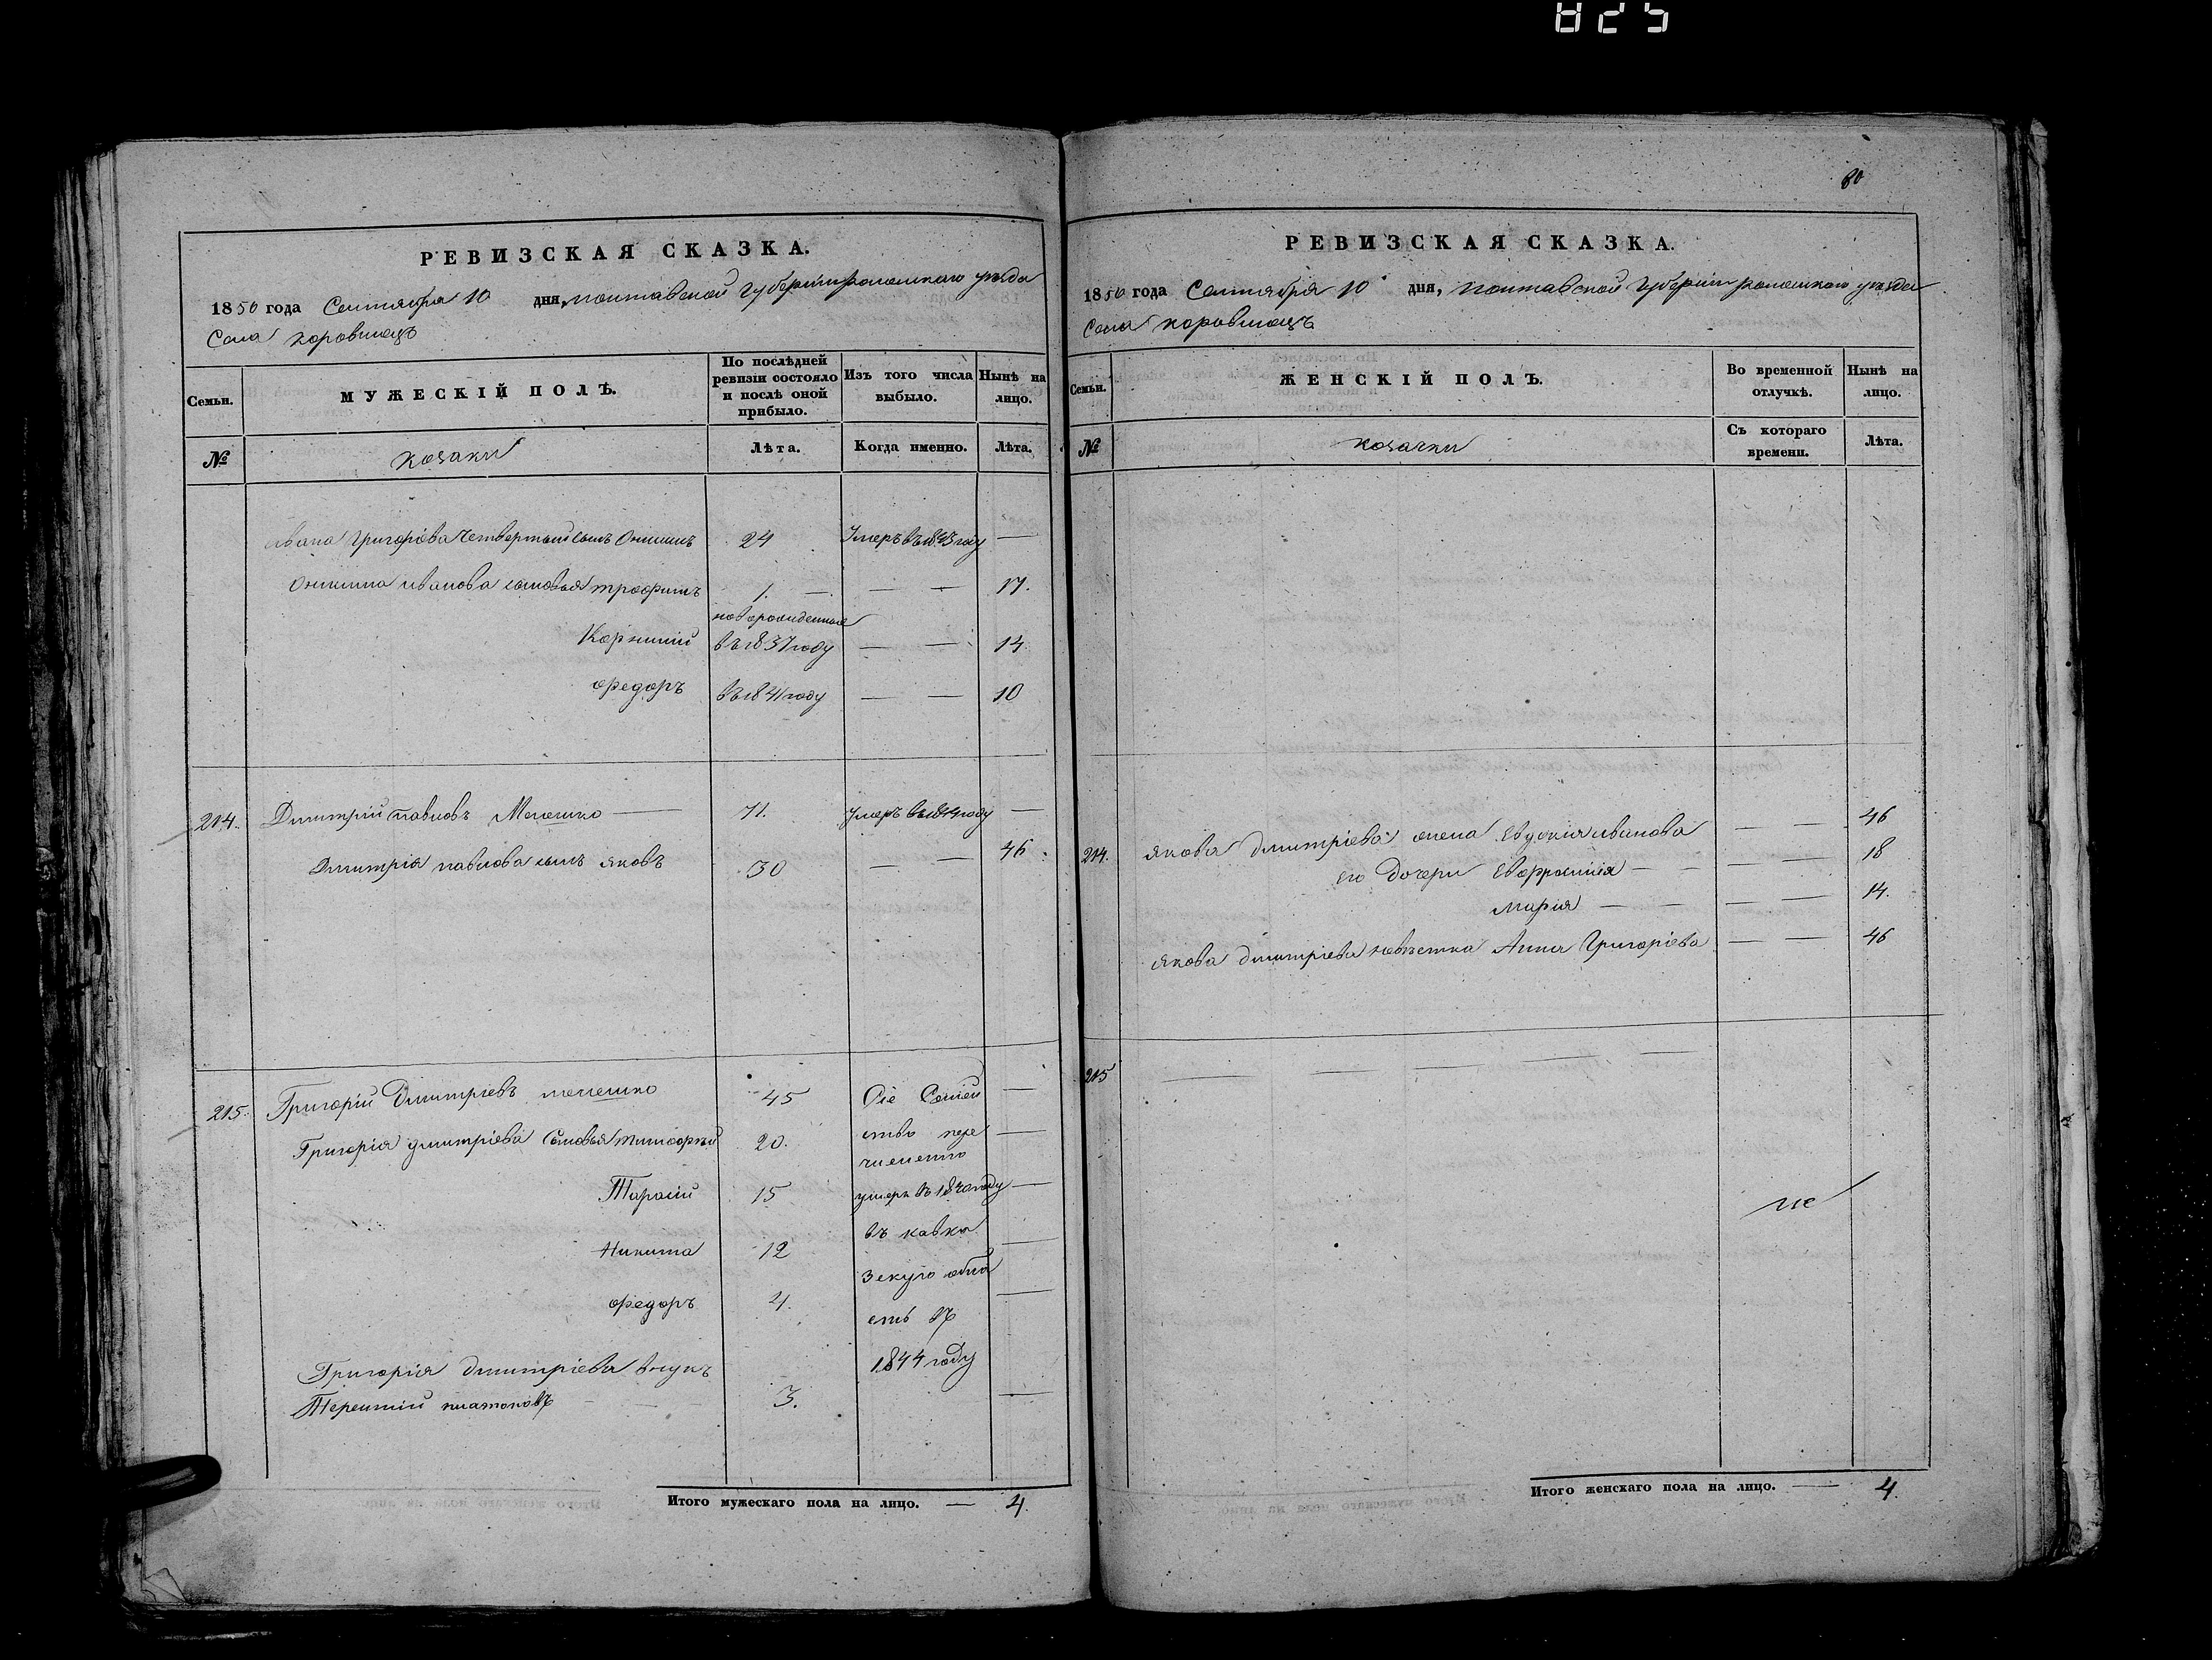 825
РЕВИЗСКАЯ СКАЗКА.
1850 года Сентября 10 дня, полтавской губерніи роменскаго уѣзда
Села коровинецъ
Семьи.
МУЖЕСКІЙ ПОЛЪ.
По послѣдней ревизіи состояло и послѣ оной прибыло.
Изъ того числа выбыло.
Нынѣ на лицо.
№
козаки
Лѣта.
Когда именно.
Лѣта.
ивана Григорьева четвертый сынъ Онисимъ 24 Умеръ въ 1843 году —
Онисима иванова сыновья трофимъ 1. — — — 17.
новорожденные
Корнилій въ 1837 году — — 14
федоръ въ 1841 году — — 10
214. Димитрій павловъ Мелешко — 71. умеръ въ 1844 году —
Димитрія павлова сынъ яковъ 30 — — 46.
215. Григорій Димитріевъ мелешко 45 Сіе Семей —
Григорія димитріева Сыновья тимофѣй 20. ство пере —
численно
Тарасій 15 умеръ въ 1840 году —
Никита 12 въ кавка —
зскую обла
федоръ 4. сть въ —
1844 году
Григорія димитріева внукъ
Терентій платоновъ — — — 3. —
Итого мужескаго пола на лицо. — 4.
80
РЕВИЗСКАЯ СКАЗКА.
1850 года Сентября 10 дня, полтавской губерніи роменскаго уѣзда
Села коровинецъ
Семьи.
ЖЕНСКІЙ ПОЛЪ.
Во временной отлучкѣ.
Нынѣ на лицо.
№
козачки
Съ котораго времени.
Лѣта.
214. якова димитріева жена Евдокія иванова — — 46
его дочери Евфросинія — — — — 18
марія — — — — 14.
якова димитріева невѣстка Анна Григоріева — — 46
215 — — — — —
Итого женскаго пола на лицо. — 4.